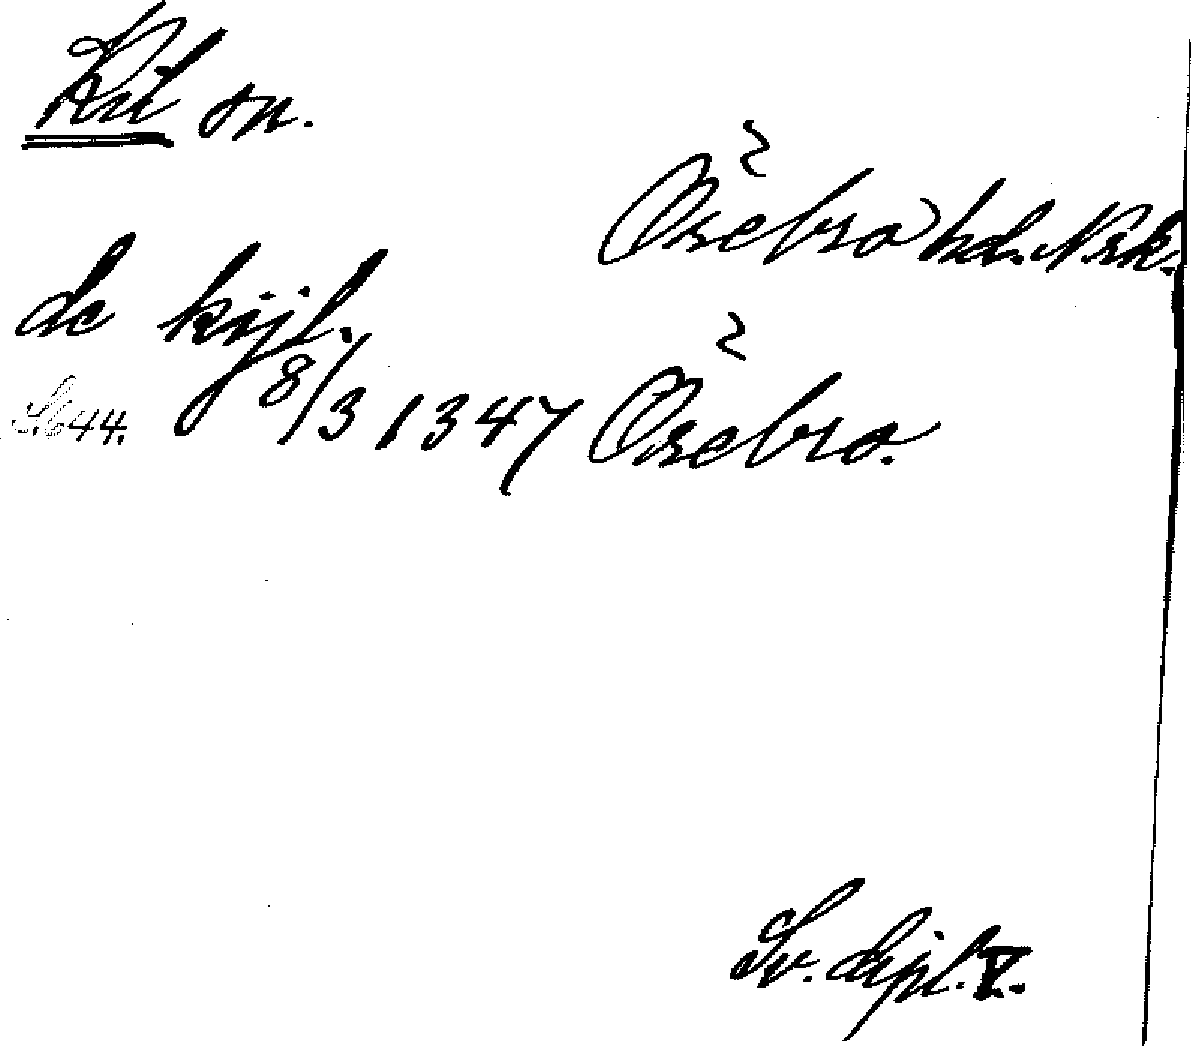 Kil sn.
Örebro hd. Nrk.
de kijl.
S. 644. 8/3 1347 Örebro.
Sv. dipl. V.